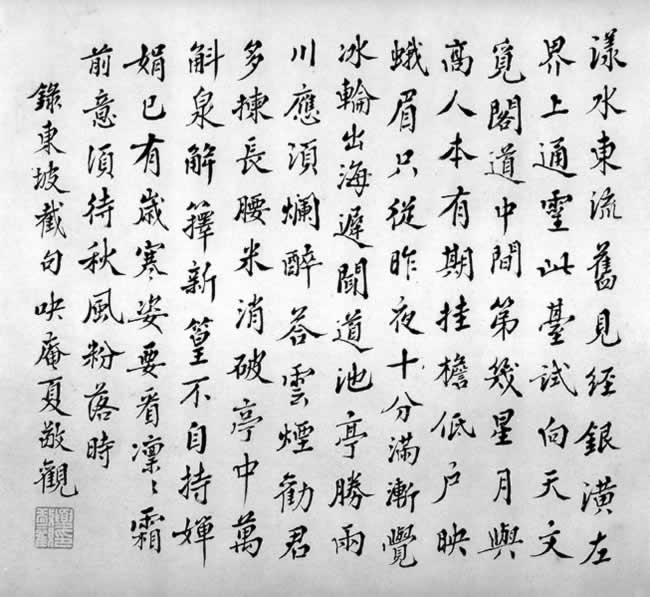 漾水東流舊見經銀潢左
界上通靈此臺試向天文
覓閣道中間第幾星月與
高人本有期挂檐低戶映
蛾眉只從昨夜十分滿漸覺
冰輪出海遲聞道池亭勝兩
川應須爛醉荅雲煙勸君
多揀長腰米消破亭中萬
斛泉解籜新篁不自持嬋
娟已有歲寒姿要看凜〻霜
前意須待秋風粉落時
錄東坡截句吷庵夏敬觀